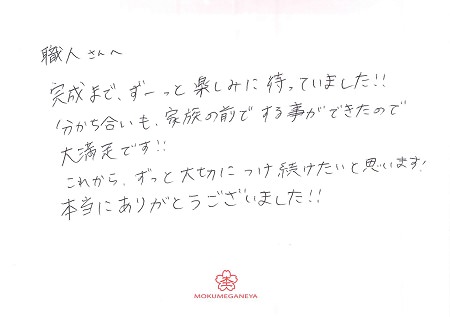 職人さんへ
完成まで、ずーっと楽しみに待っていました!!
分かち合いも、家族の前でする事ができたので
大満足です!!
これから、ずっと大切につけ続けたいと思います!
本当にありがとうございました!!
MOKUMEGANEYA